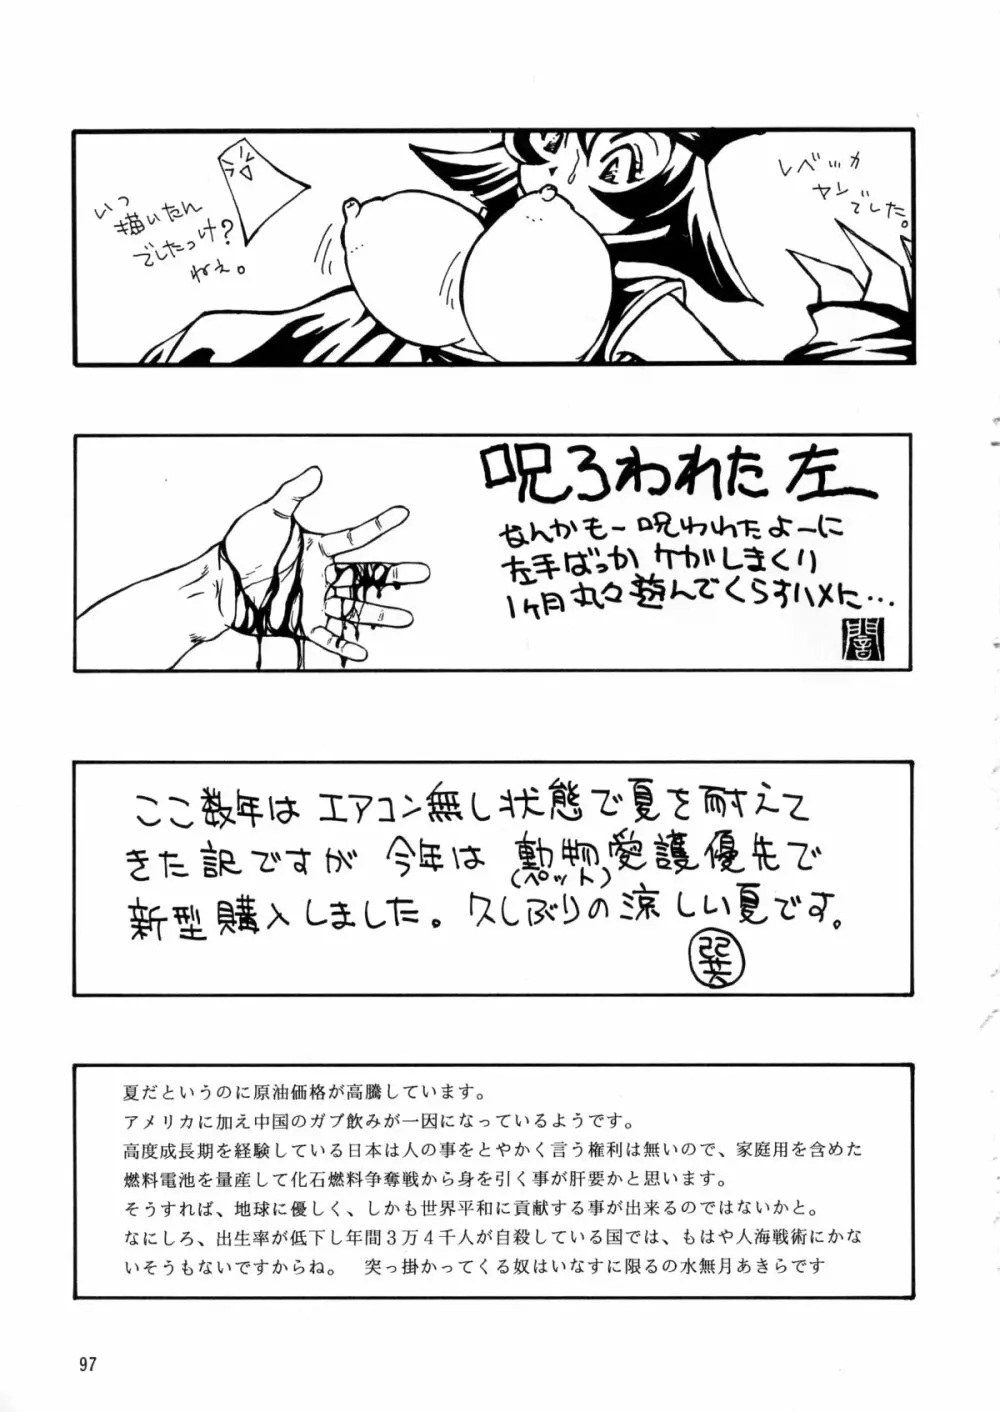 いつ
描いたん
でしたっけ?
ねぇ。
レベッカ
でした。
呪ろわれた左
なんかもー呪われたよーに
左手ばっかケガしまくり
1ヶ月丸々遊んでくらすハメに…
闇
ここ数年は エアコン無し状態で夏を耐えて
きた訳ですが 今年は 動物愛護優先で
(ペット)
新型購入しました。久しぶりの涼しい夏です。
夏だというのに原油価格が高騰しています。
アメリカに加え中国のガブ飲みが一因になっているようです。
高度成長期を経験している日本は人の事をとやかく言う権利は無いので、家庭用を含めた
燃料電池を量産して化石燃料争奪戦から身を引く事が肝要かと思います。
そうすれば、地球に優しく、しかも世界平和に貢献する事が出来るのではないかと。
なにしろ、出生率が低下し年間3万4千人が自殺している国では、もはや人海戦術にかな
いそうもないですからね。 突っ掛かってくる奴はいなすに限るの水無月あきらです
97